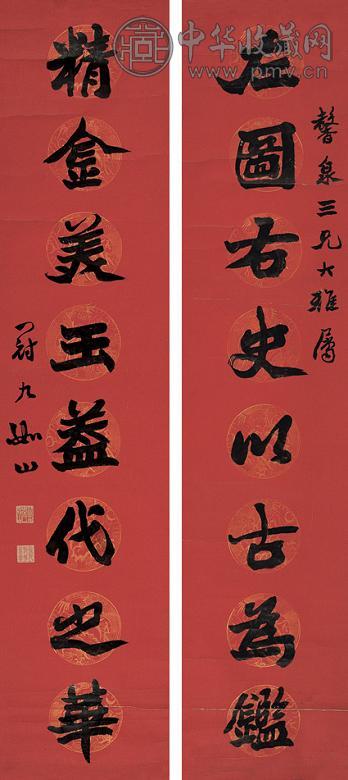 中华收藏网
www.pmv.cn
馨泉三兄大雅屬
左圖右史以古為鑑
精金美玉葢代之華
冠九如山